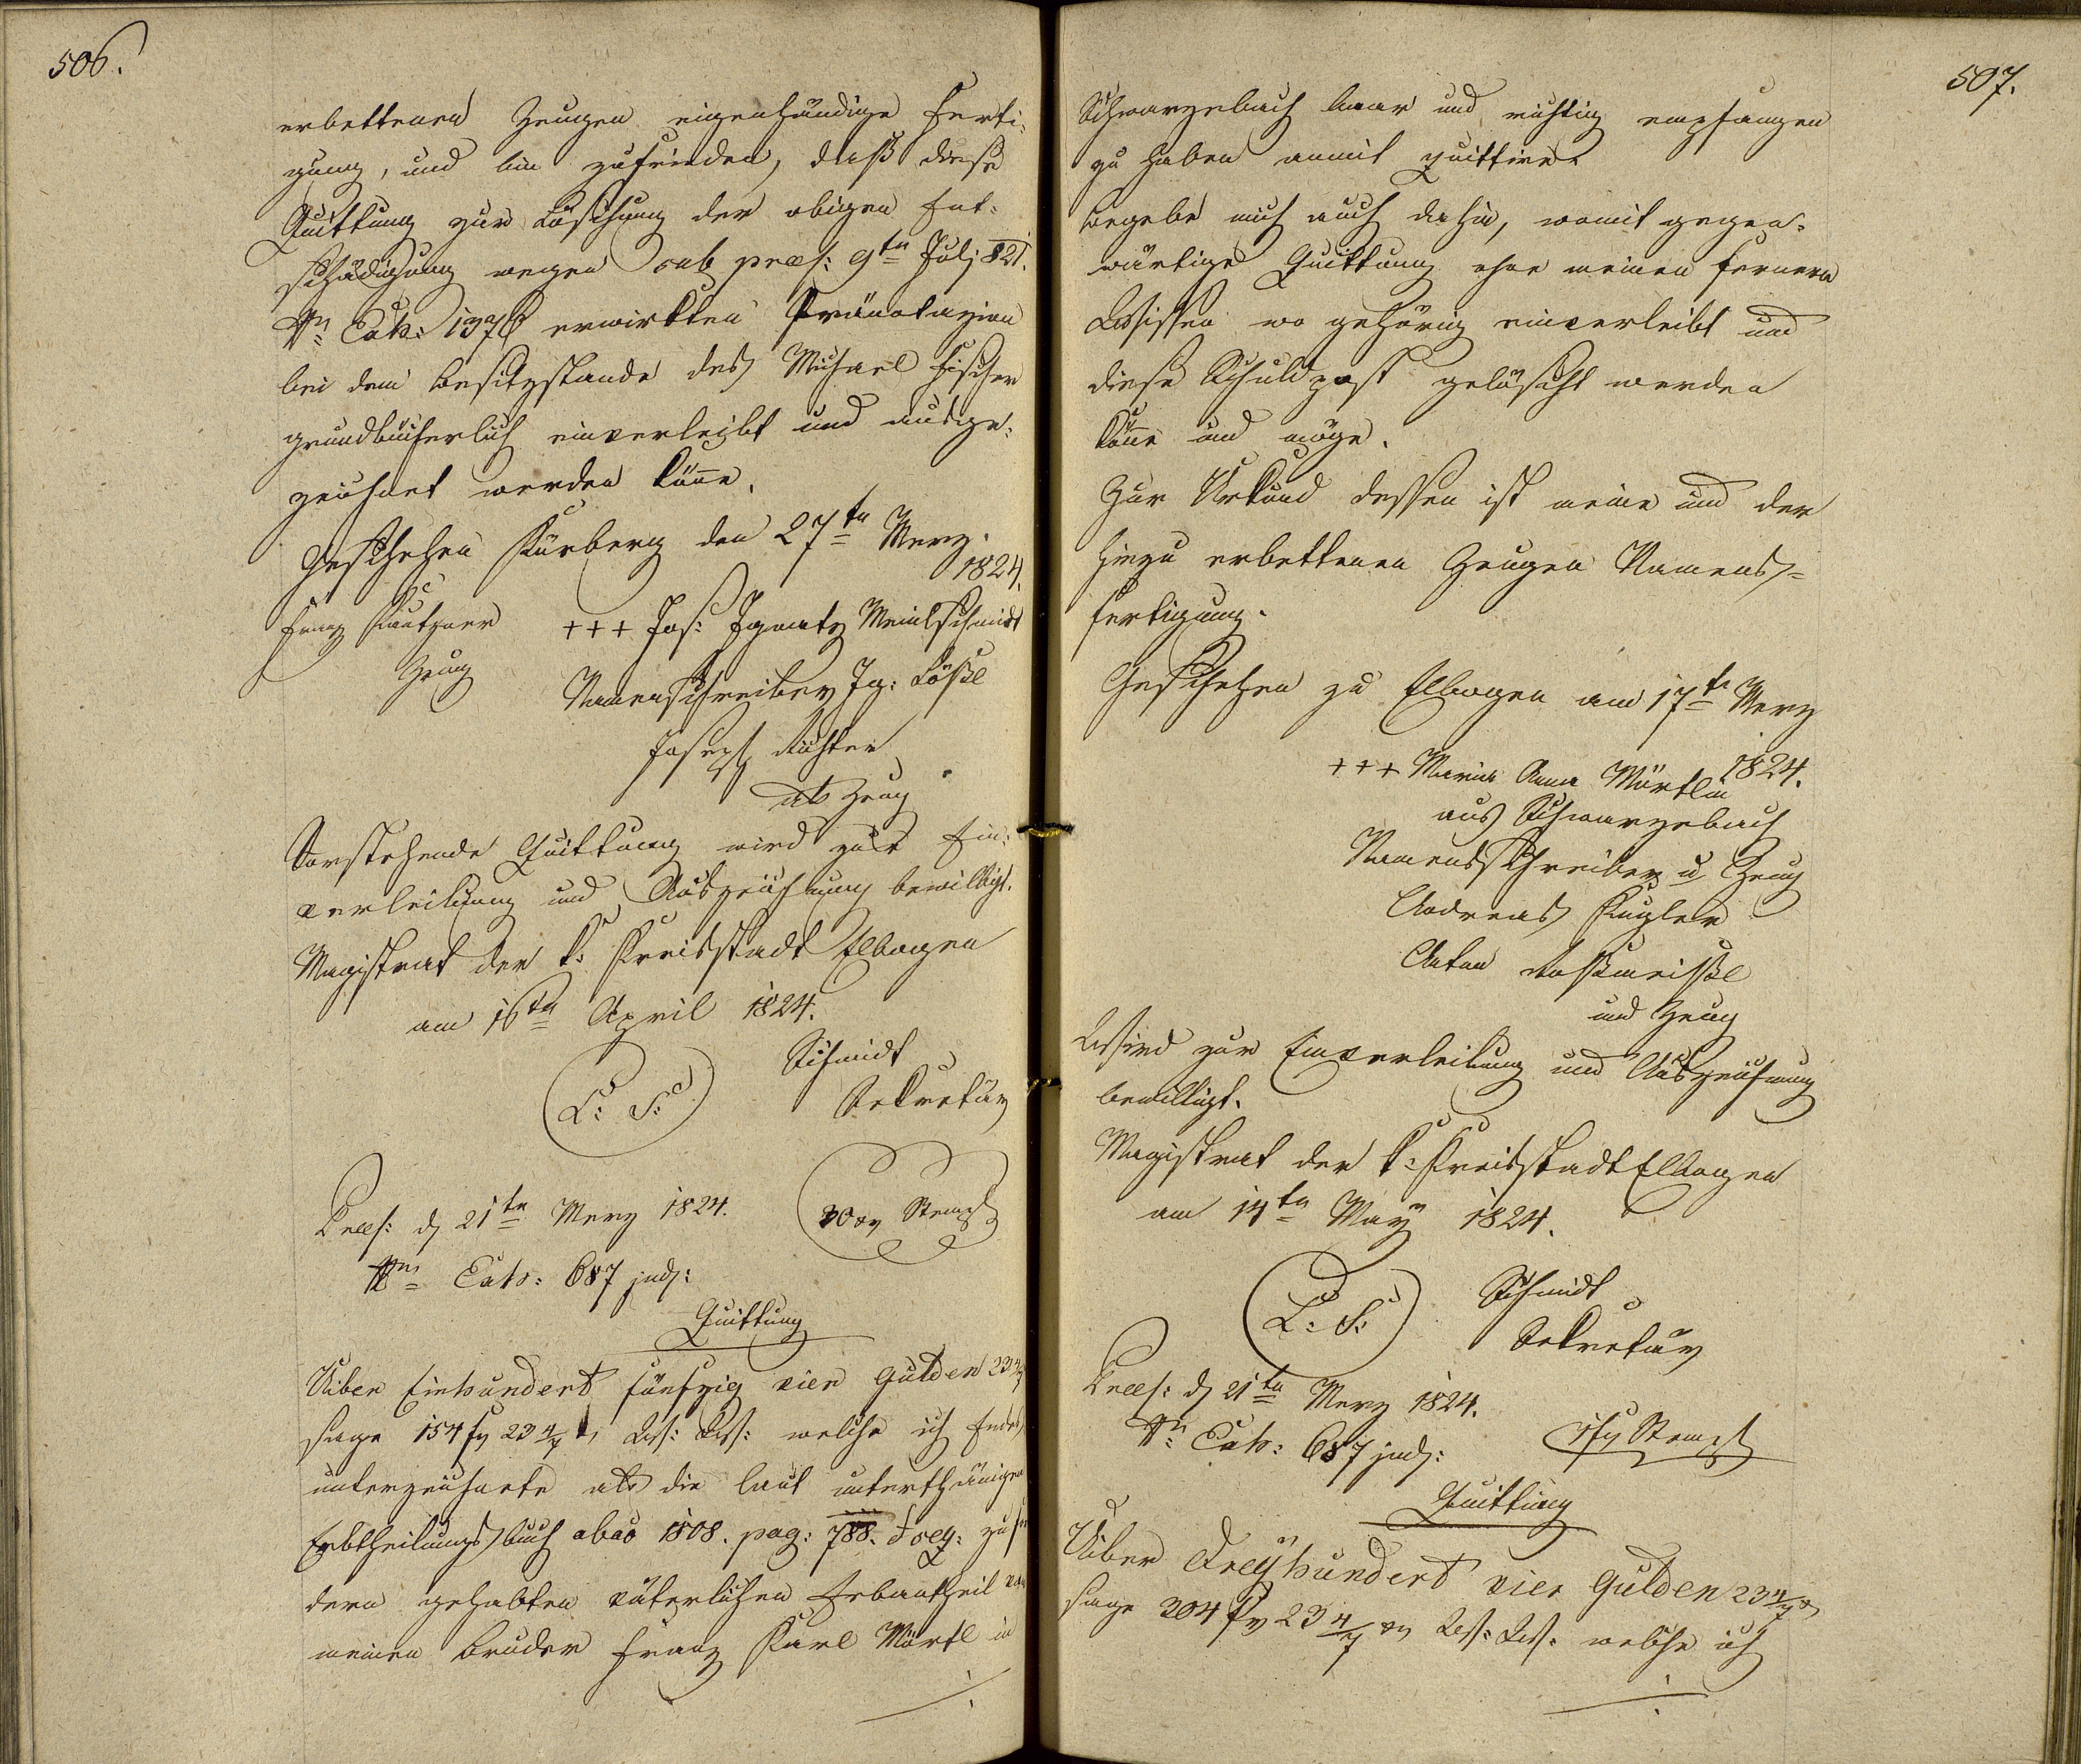 506.
erbettenen Zeugen eigenhändige Ferti-
gung, und bin zufrieden, daß diese
Quittung zur Löschung der obigen Ent-
schädigung wegen sub praes: 9ten Julj 821.
Nr. Exh: 1376 erwirkten Pränotazion
bei dem Besitzstande des Michael Fischer
grundbücherlich einverleibt und ausge-
zeichnet werden könne.
Geschehen Kürberg den 27ten Merz
1824.
Franz Kautzner +++ Jos: Ignatz Meinlschmidt
Zeug Namensschreiber Ig: Lößl
Joseph Richter
als Zeug
Vorstehende Quittung wird zur Ein-
verleibung und Auszeichnung bewilligt.
Magistrat der k: Kreisstadt Elbogen
am 16ten April 1824.
Schmidt
(L: S:) Sekretär
Praes: d 21ten Merz 1824. 30 xr Stempl
Nr Exh: 687 jud:
Quittung
Uiber Einhundert fünfzig vier Gulden 23 4/7
sage 154 fr 23 4/7 x W: W: welche ich Endes
unterzeichnete als die laut unterthänigen
Erbtheilungsbuch abao 1808. pag: 788. & seq: zu for
dern gehabten väterlichen Erbantheil von
meinen Bruder Franz Karl Märtl in
507.
Schwarzebach baar und richtig empfangen
zu haben anmit quittire.
Begebe mich auch dahin, womit gegen-
wärtige Quittung ohne meinen fernern
Wissen wo gehörig einverleibt und
diese Schuldpost gelöscht werden
könne und möge.
Zur Urkund dessen ist meine und der
hiezu erbettenen Zeugen Namens-
fertigung.
Geschehen zu Elbogen am 17ten Merz
1824.
+++ Maria Anna Märtlin
aus Schwarzebach
Namensschreiber u Zeug
Andreas Kugler
Anton Roßmeißl
und Zeug
Wird zur Einverleibung und Auszeichnung
bewilligt.
Magistrat der k: Kreisstadt Elbogen
am 14ten May 1824.
Schmidt
(L: S:) Sekretär
Praes: d 21ten Merz 1824.
Nr. Exh: 687 jud: 1 fr Stempl
Quittung
Uiber Dreyhundert vier Gulden 23 4/7 x
sage 304 fr 23 4/7 xr W: W: welche ich